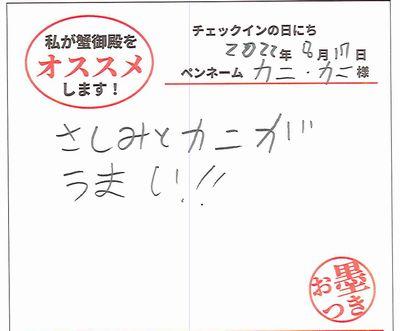 私が蟹御殿を
オススメ
します！
チェックインの日にち
2022年8月17日
ペンネーム カニ・カニ様
さしみとカニが
うまい!!
お墨
つき